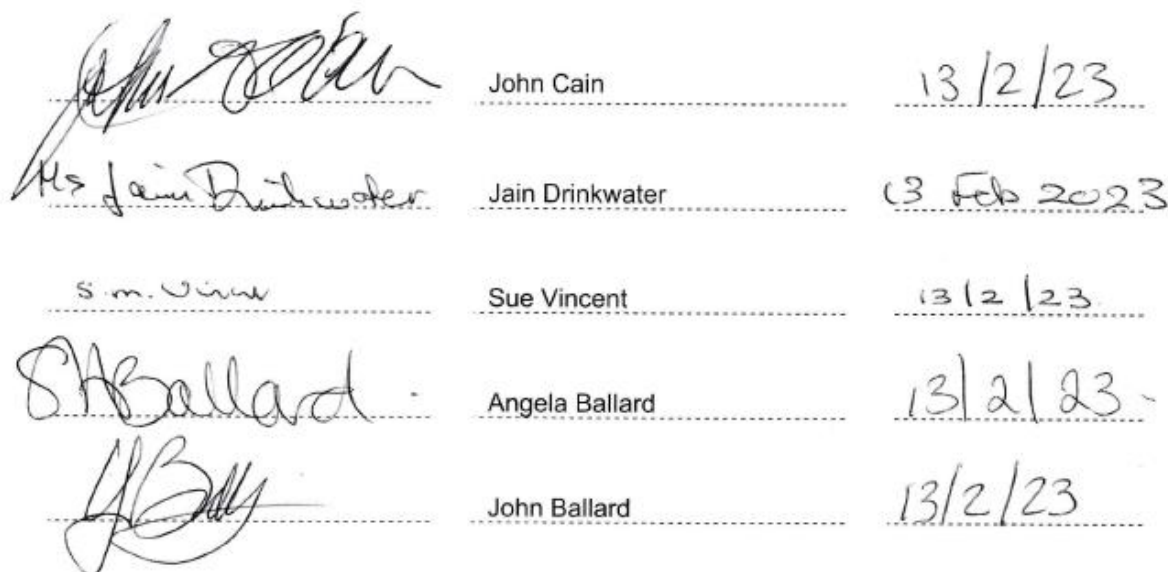 John Cain 13/2/23
Ms Jain Drinkwater Jain Drinkwater 13 Feb 2023
S.m. Sue Vincent 13/2/23
SABallard Angela Ballard 13/2/23
John Ballard 13/2/23